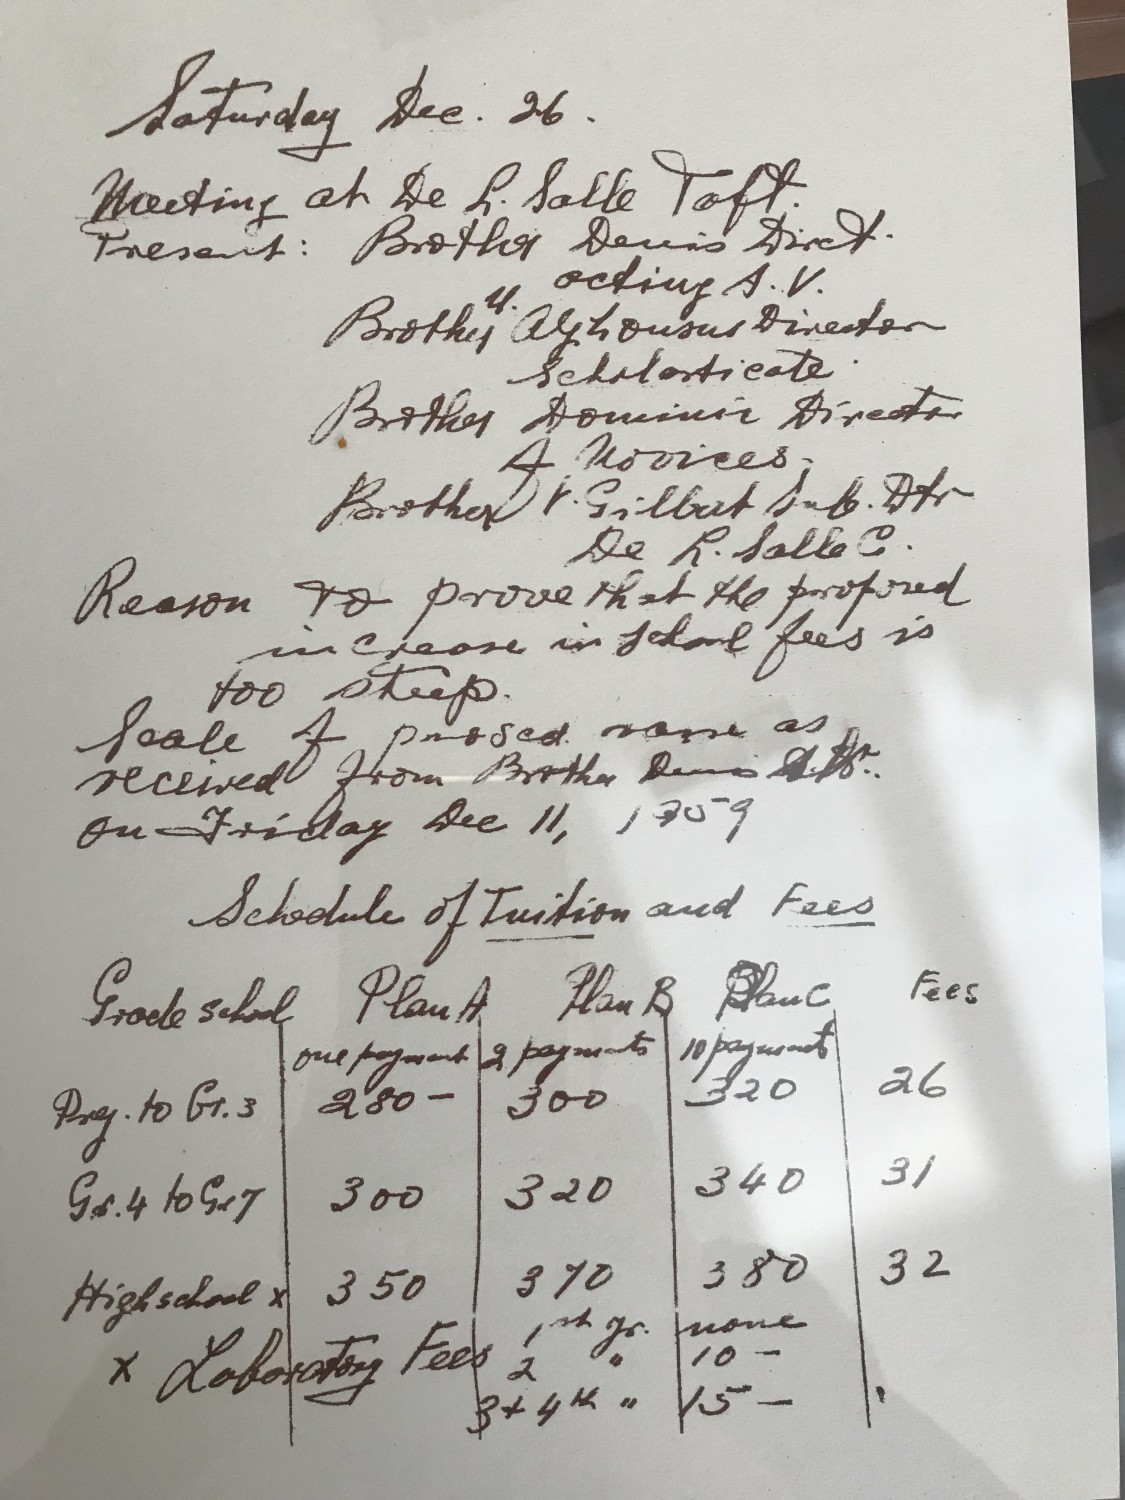 Saturday Dec. 26.
Meeting at De L. Salle Taft.
Present: Brother Denis Direct.
acting A.V.
Brother U. Alphonsus Director
Scholasticate.
Brother Dominic Director
of Novices.
Brother V. Gilbert Sub. Dtr
De L. Salle C.
Reason to prove that the proposed
increase in school fees is
too steep.
Scale of prosed same as
received from Brother Denis
on Friday Dec 11, 1959
Schedule of Tuition and Fees
Grade school Plan A Plan B Plan C Fees
one payment 2 payments 10 payments
Prep. to Gr. 3 280 - 300 320 26
Gr. 4 to Gr 7 300 320 340 31
High school x 350 370 380 32
x Laboratory Fees 1st yr. none
2 " 10 -
3 + 4th " 15 -